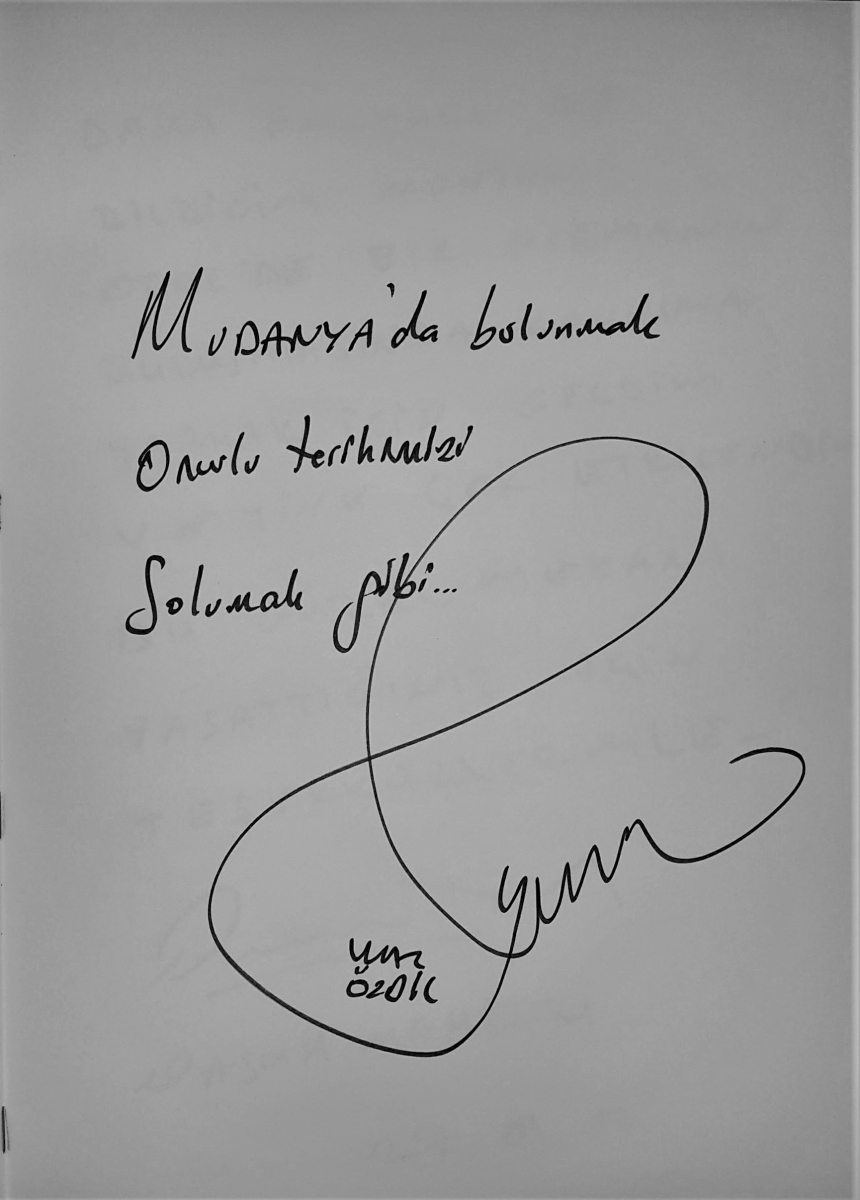 MUDANYA'da bulunmak
Onurlu tarihimizi
Solumak gibi...
Yılmaz
ÖZDİL